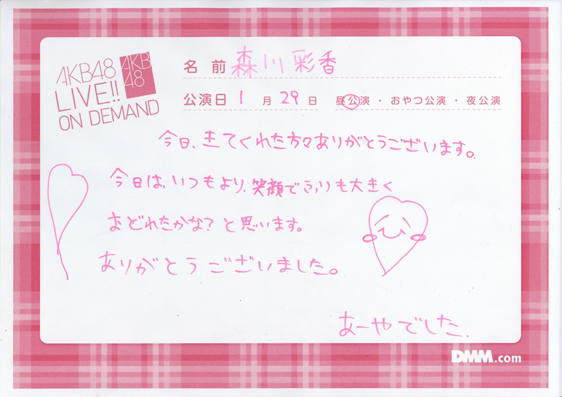 AKB48
LIVE!!
ON DEMAND
AKB
48
名前 森川彩香
公演日 1月29日 昼公演・おやつ公演・夜公演
今日、きてくれた方々ありがとうございます。
今日は、いつもより、笑顔でふりも大きく
おどれたかな?と思います。
ありがとうございました。
あーやでした.
DMM.com